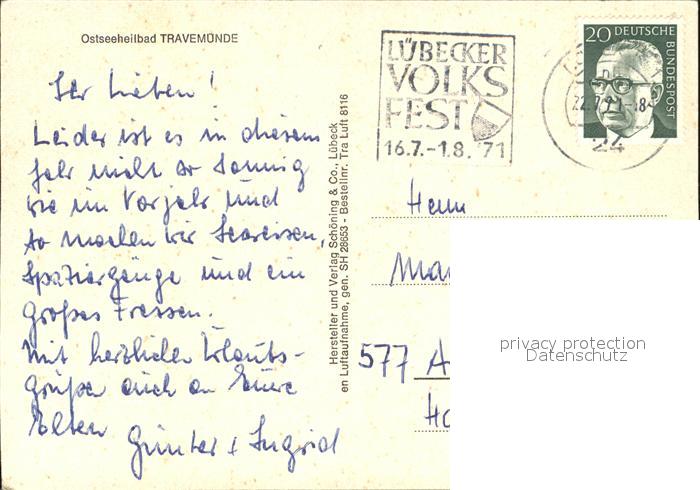 Ostseeheilbad TRAVEMÜNDE
Ihr Lieben!
Leider ist es in diesem
Jahr nicht so sonnig
wie im Vorjahr und
so machen wir Seereisen,
Spaziergänge und ein
großes Fressen.
Mit herzlichen Urlaubs-
grüßen auch an Eure
Eltern Günter + Ingrid
Hersteller und Verlag Schöning & Co., Lübeck
en Luftaufnahme, gen. SH 28653 - Bestellnr. Tra Luft 8116
LÜBECKER
VOLKS
FEST
16.7.-1.8.'71
20 DEUTSCHE
BUNDESPOST
24
Herrn
577
privacy protection
Datenschutz